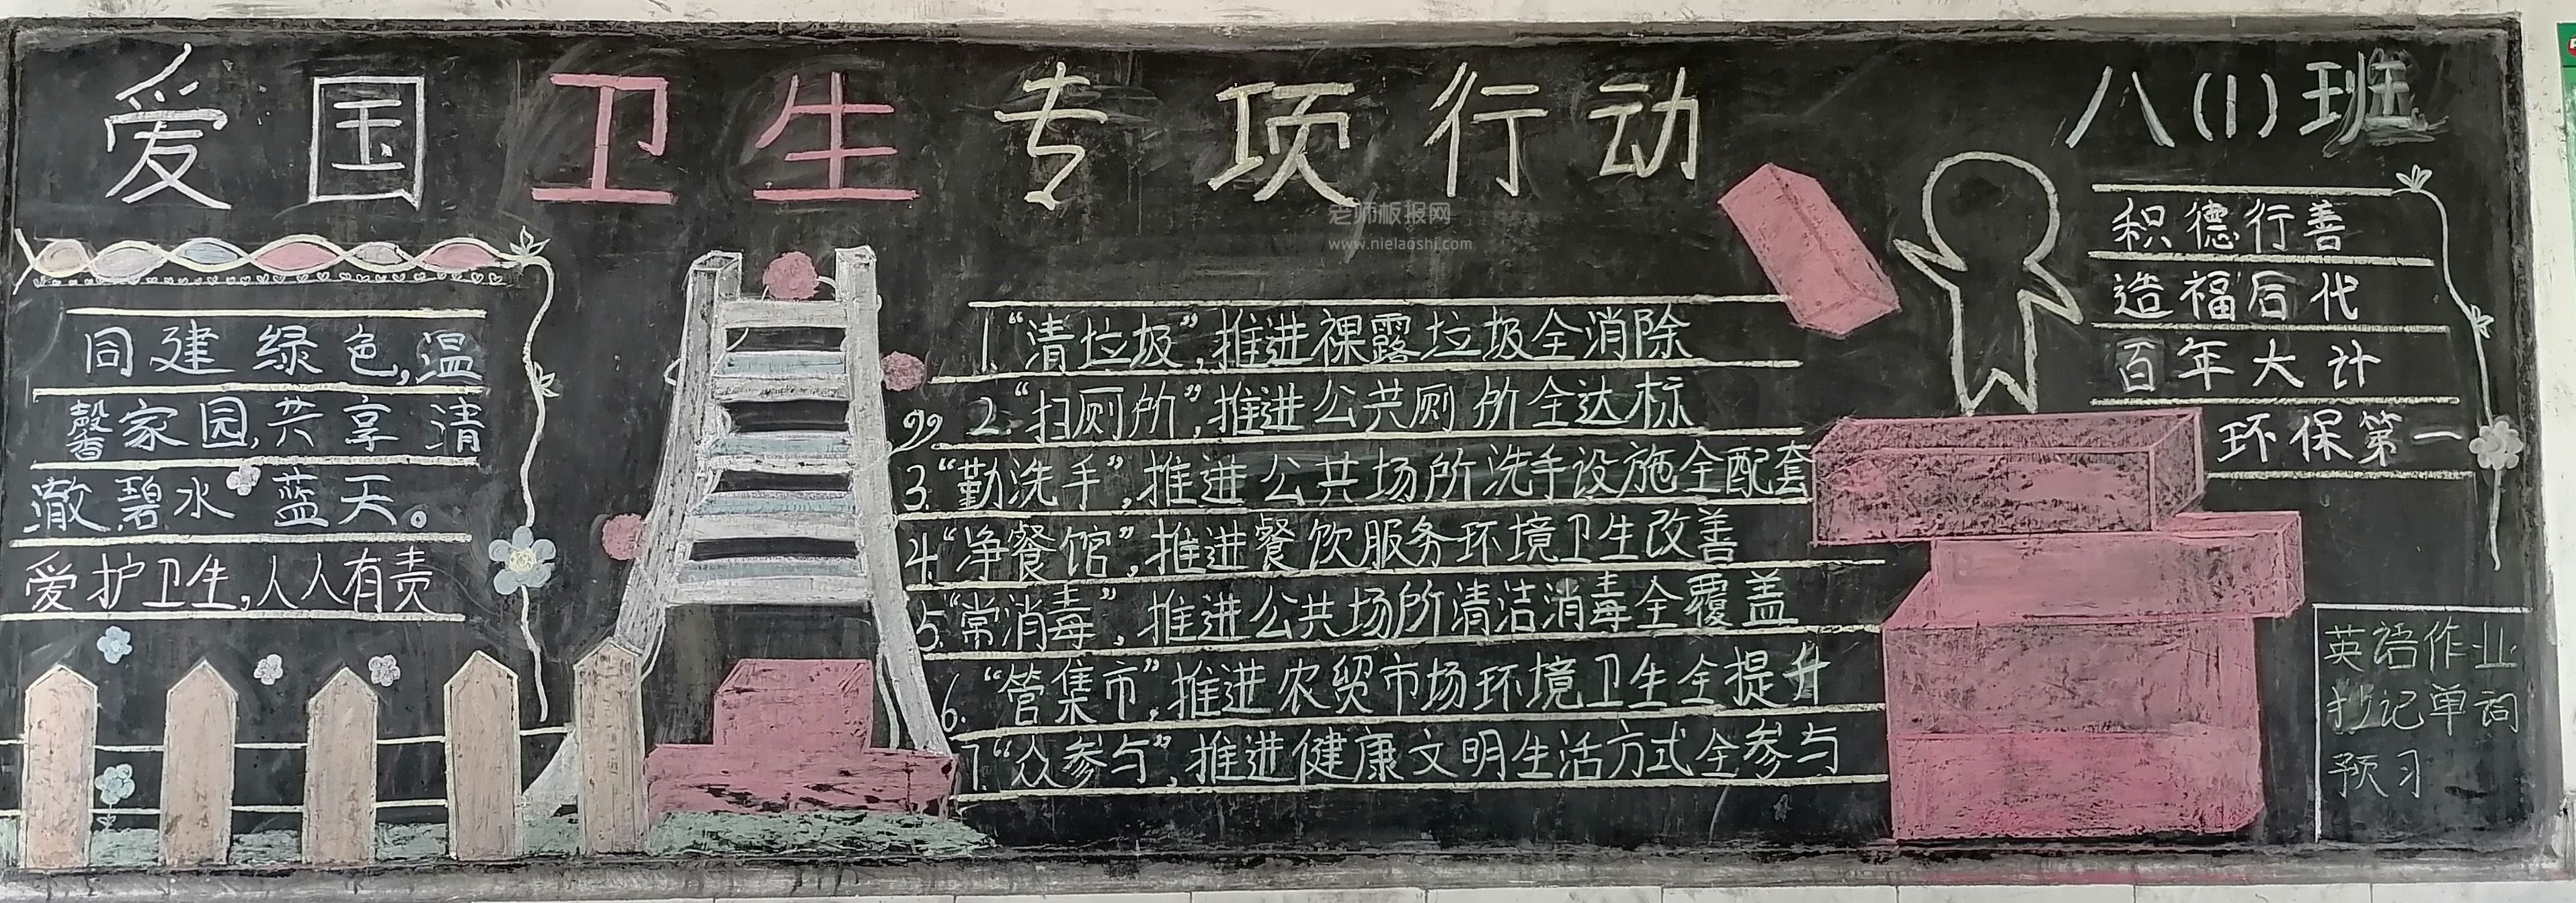 爱国卫生专项行动
八(1)班
同建绿色,温
馨家园,共享清
澈碧水蓝天。
爱护卫生,人人有责
老师板报网
www.nielaoshi.com
1.“清垃圾”,推进裸露垃圾全消除
2.“扫厕所”,推进公共厕所全达标
3.“勤洗手”,推进公共场所洗手设施全配套
4.“净餐馆”,推进餐饮服务环境卫生改善
5.“常消毒”,推进公共场所清洁消毒全覆盖
6.“管集市”,推进农贸市场环境卫生全提升
7.“众参与”,推进健康文明生活方式全参与
积德行善
造福后代
百年大计
环保第一
英语作业
抄记单词
预习